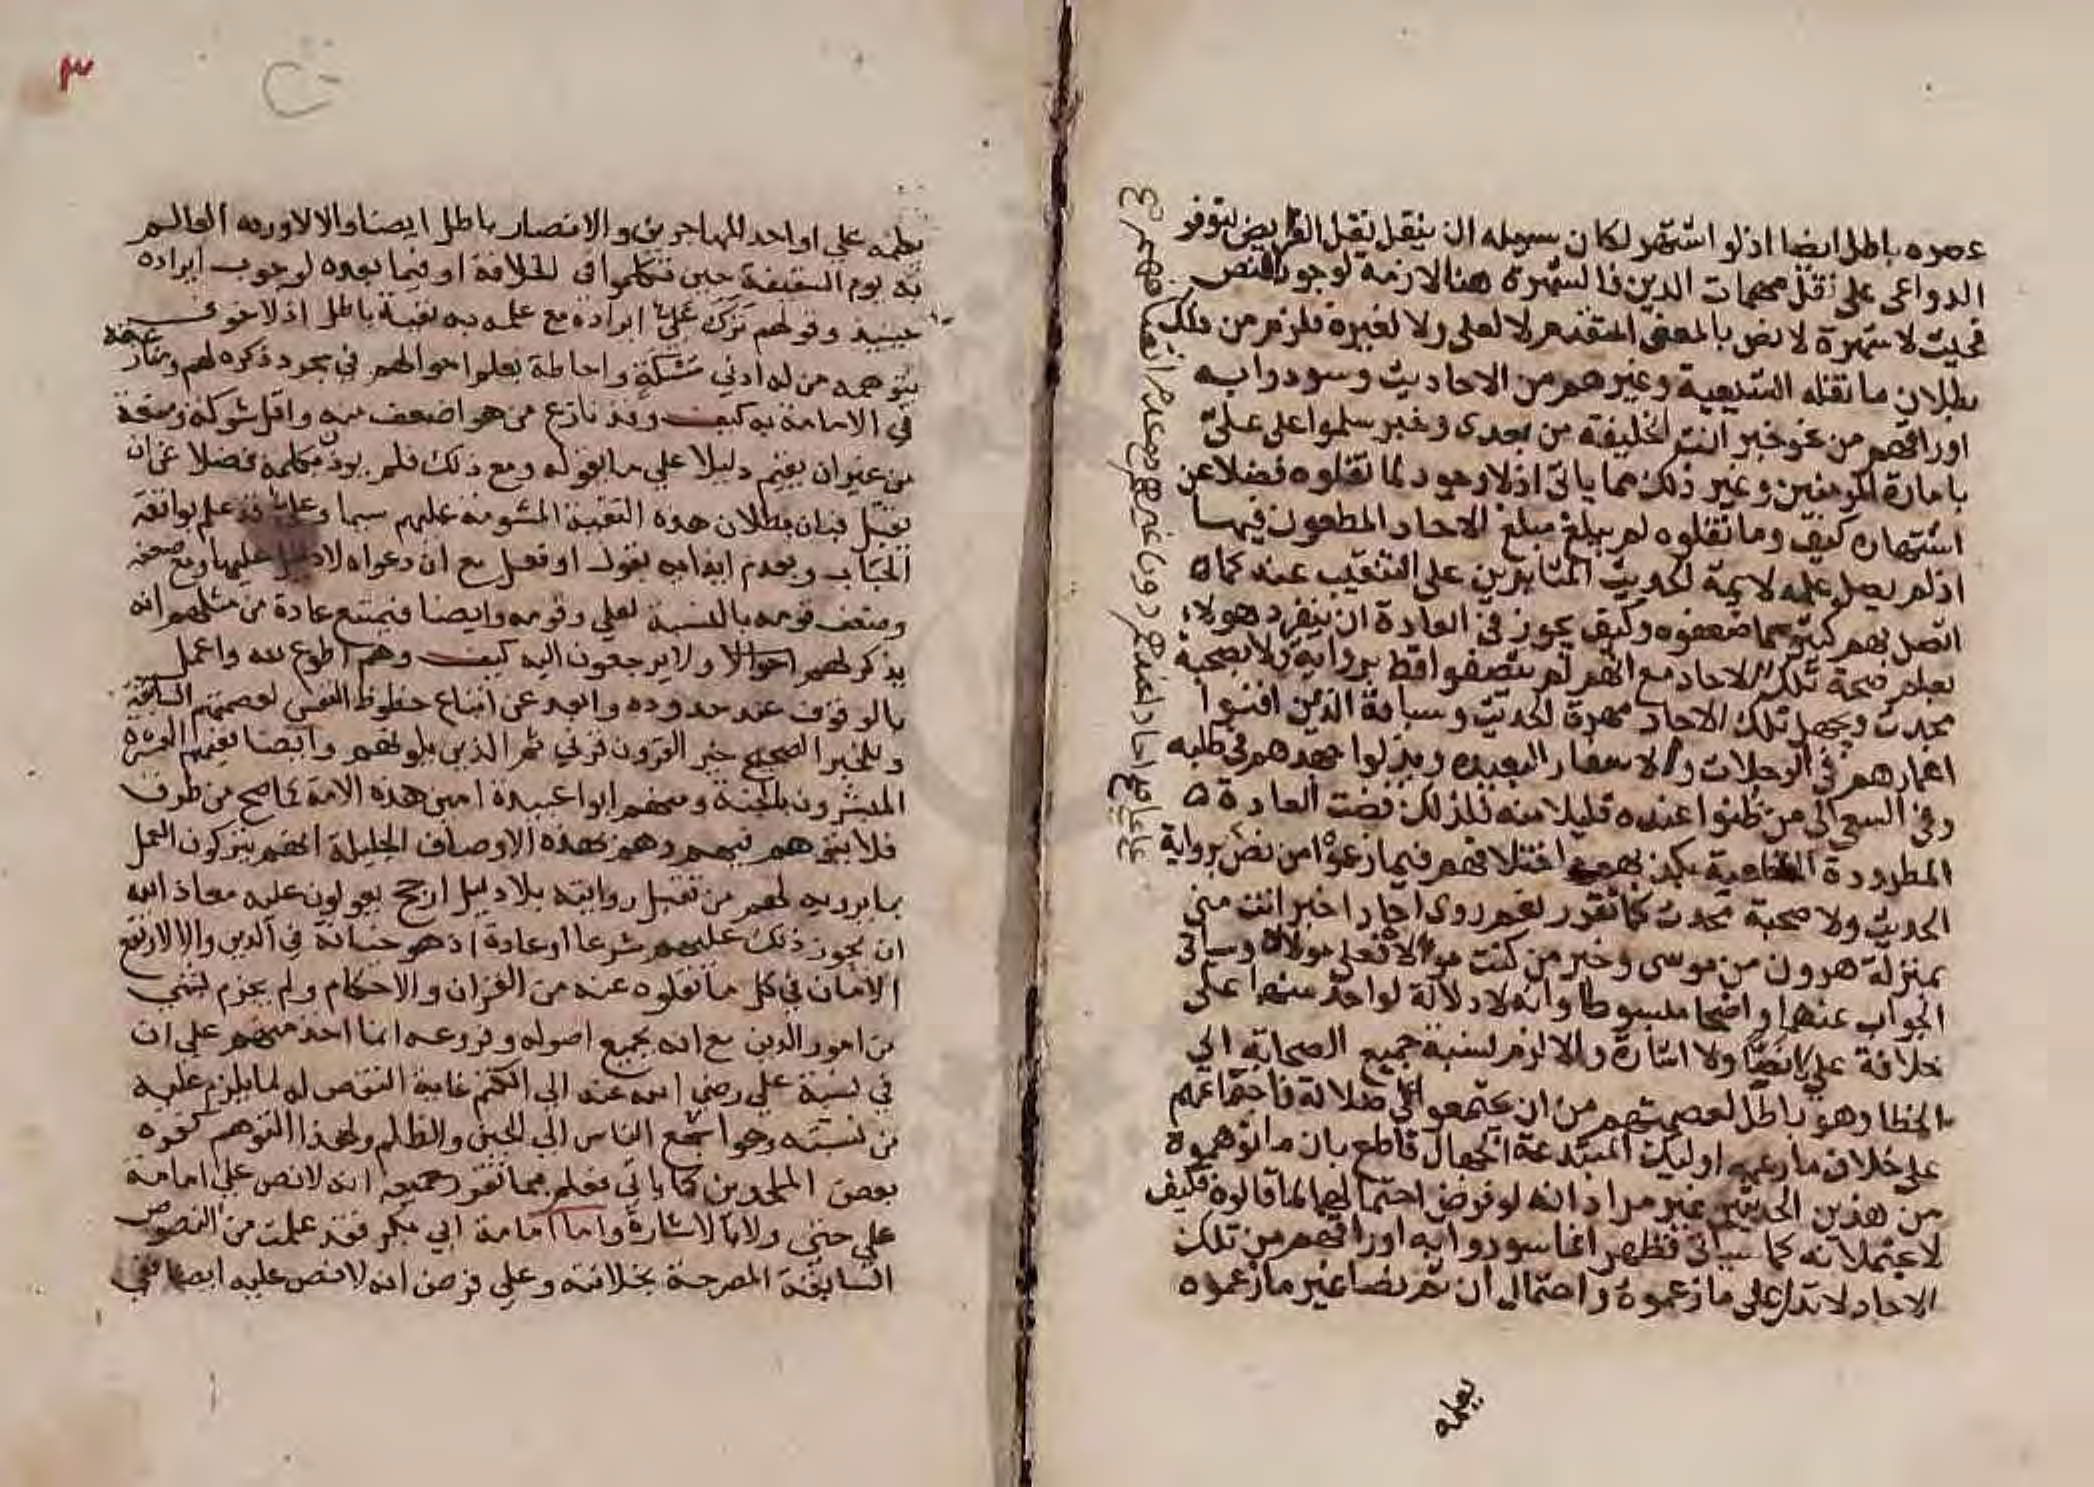 عصره باطل ايضا اذ لو اشتهر لكان سبيله ان ينقل نقل الفرايض لتوفر
الدواعي على نقل مهمات الدين فالشهرة هنا لازمة لوجود النص
فحيث لا شهرة لا نص بالمعنى المتقدم لا لعلي ولا لغيره فلزم من ذلك
بطلان ما نقله الشيعة وغيرهم من الاحاديث وسودوا به
اوراقهم من نحو خبر انت الخليفة من بعدي وخبر سلموا على علي
بامارة المومنين وغير ذلك مما ياتي اذ لا وجود لما نقلوه فضلا عن
اشتهاره كيف وما نقلوه لم يبلغ مبلغ الاحاد المطعون فيها
اذ لم يصل علمه لايمة الحديث المثابرين على التنقيب عنه كما
اتصل بهم كثير مما ضعفوه وكيف يجوز في العادة ان ينفرد هولاء
بعلم صحة تلك الاحاد مع انهم لم يتصفوا قط برواية ولا بصحبة
محدث ويجهل تلك الاحاد مهرة الحديث وسباقه الذين افنوا
اعمارهم في الرحلات والاسفار البعيدة وبذلوا جهدهم في طلبه
وفي السعي الى من ظنوا عنده قليلا منه فلذلك قضت العادة
المطردة القطعية بكذبهم واختلاقهم فيما زعموا من نص برواية
الحديث ولا صحبة محدث كما تقرر نعم روى احاد اخبر انت مني
بمنزلة هرون من موسى وخبر من كنت مولاه فعلي مولاه وسياتي
الجواب عنهما واضحا مبسوطا وانه لا دلالة لواحد منهما على
خلافة علي لا نصا ولا اشارة والا لزم نسبة جميع الصحابة الى
الخطا وهو باطل لعصمتهم من ان يجتمعوا على ضلالة فاجتماعهم
على خلاف ما زعمه اوليك المبتدعة الجهال قاطع بان ما توهموه
من هذين الحديثين غير مراد انه لو فرض احتمالهما لما قالوه فكيف
لا يحتملانه كما سياتي فظهر انما سودوا به اوراقهم من تلك
الاحاد لا تدل على ما زعموه واحتمال ان ثم نصا غير ما زعموه
يعلمه
٣
يعلمه علي او احد المهاجرين والانصار باطل ايضا والا لاورده العالم
به يوم السقيفة حين تكلموا في الخلافة او فيما بعده لوجوب ايراده
حينيذ وقولهم ترك علي ايراده مع علمه به تقية باطل اذ لا خوف
يتوهمه من له ادنى مسكة واحاطة بعلم احوالهم في مجرد ذكره لهم ومنازعته
في الامامة به كيف وقد نازع من هو اضعف منه واقل شوكة ومنعة
من غير ان يقيم دليلا على ما يقوله ومع ذلك فلم يوذ بكلمة فضلا عن ان
يقتل فبان بطلان هذه التقية المشومة عليهم سيما وعلي قد علم بواقعة
الحباب وبعدم ايذايه بقول او فعل مع ان دعواه لا دليل عليها ومع ضعفه
وضعف قومه بالنسبة لعلي وقومه وايضا فيمتنع عادة من مثلهم انه
يذكر لهم احوالا ولا يرجعون اليه كيف وهم اطوع لله واعمل
بالوقوف عند حدوده وابعد عن اتباع حظوظ النفس لعصمتهم السابقة
وللخبر الصحيح خير القرون قرني ثم الذين يلونهم وايضا ففيهم العشرة
المبشرون بالجنة ومنهم ابو عبيدة امين هذه الامة كما صح من طرق
فلا يتوهم فيهم وهم بهذه الاوصاف الجليلة انهم يتركون العمل
بما يرويه لهم من تقبل روايته بلا دليل ارجح يعولون عليه معاذ الله
ان يجوز ذلك عليهم شرعا او عادة اذ هو خيانة في الدين والا لارتفع
الامان في كل ما نقلوه عنه من القران والاحكام ولم يجزم بشي
من امور الدين مع انه بجميع اصوله وفروعه انما اخذ منهم على ان
في نسبة علي رضي الله عنه الى الكتم غاية النقص له لما يلزم عليه
من نسبته وهو اشجع الناس الى الجبن والظلم ولهذا التوهم كفره
بعض الملحدين كما ياتي فعلم مما تقرر جميعه انه لا نص على امامة
علي حتى ولا بالاشارة واما امامة ابي بكر فقد علمت من النصوص
السابقة المصرحة بخلافته وعلى فرض انه لا نص عليه ايضا ففي